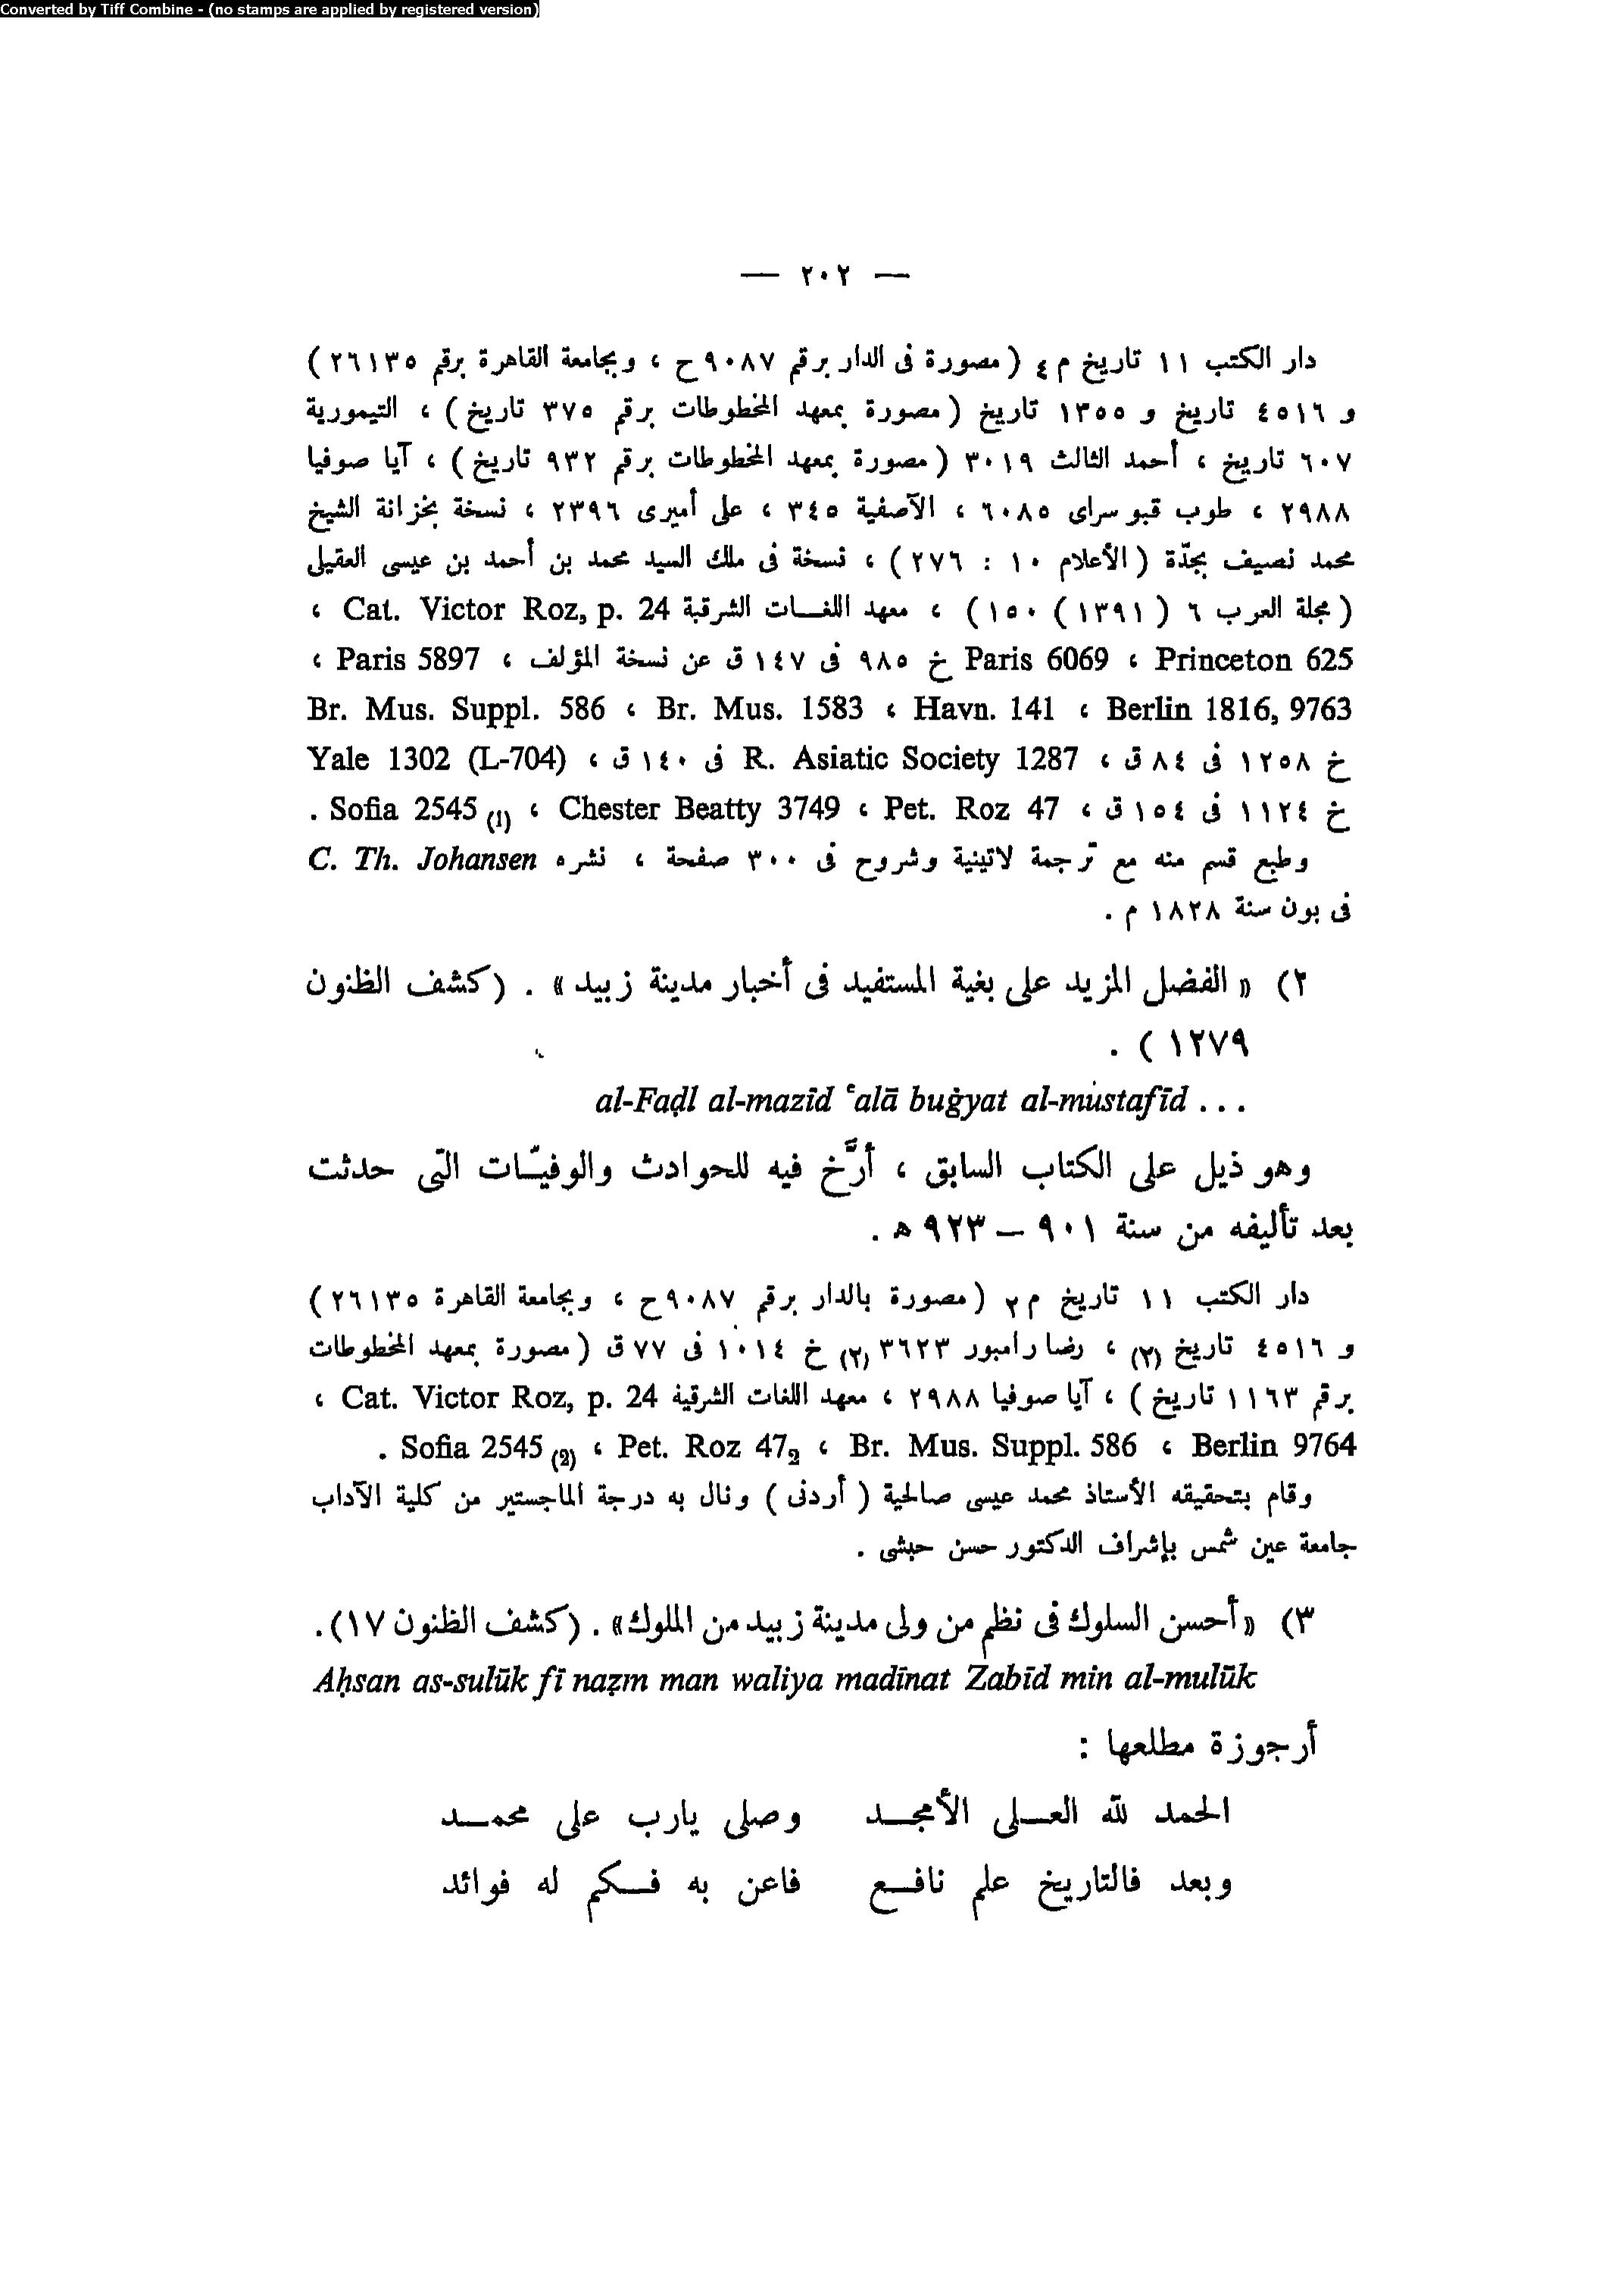 Converted by Tiff Combine - (no stamps are applied by registered version)
— ٢٠٢ —
دار الكتب ١١ تاريخ م٤ ( مصورة فى الدار برقم ٩٠٨٧ ح ، وبجامعة القاهرة برقم ٢٦١٣٥ )
و ٤٥١٦ تاريخ و ١٣٥٥ تاريخ ( مصورة بمعهد المخطوطات برقم ٣٧٥ تاريخ ) ، التيمورية
٦٠٧ تاريخ ، أحمد الثالث ٣٠١٩ ( مصورة بمعهد المخطوطات برقم ٩٣٢ تاريخ ) ، آيا صوفيا
٢٩٨٨ ، طوب قبو سراى ٦٠٨٥ ، الآصفية ٣٤٥ ، على أميرى ٢٣٩٦ ، نسخة بخزانة الشيخ
محمد نصيف بجدّة ( الأعلام ١٠ : ٢٧٦ ) ، نسخة فى ملك السيد محمد بن أحمد بن عيسى العقيلى
( مجلة العرب ٦ ( ١٣٩١ ) ١٥٠ ) ، معهد اللغـات الشرقية Cat. Victor Roz, p. 24 ،
Princeton 625 ، Paris 6069 خ ٩٨٥ فى ١٤٧ ق عن نسخة المؤلف ، Paris 5897 ،
Berlin 1816, 9763 ، Havn. 141 ، Br. Mus. 1583 ، Br. Mus. Suppl. 586
خ ١٢٥٨ فى ٨٤ ق ، R. Asiatic Society 1287 فى ١٤٠ ق ، Yale 1302 (L-704)
خ ١١٢٤ فى ١٥٤ ق ، Pet. Roz 47 ، Chester Beatty 3749 ، Sofia 2545 (1) .
وطبع قسم منه مع ترجمة لاتينية وشروح فى ٣٠٠ صفحة ، نشره C. Th. Johansen
فى بون سنة ١٨٢٨ م .
٢) « الفضل المزيد على بغية المستفيد فى أخبار مدينة زبيد » . ( كشف الظنون
١٢٧٩ ) .
al-Faḍl al-mazīd ʿalā buġyat al-mustafīd . . .
وهو ذيل على الكتاب السابق ، أرَّخ فيه للحوادث والوفيّـات التى حدثت
بعد تأليفه من سنة ٩٠١ – ٩٢٣ هـ .
دار الكتب ١١ تاريخ م٢ ( مصورة بالدار برقم ٩٠٨٧ ح ، وبجامعة القاهرة ٢٦١٣٥ )
و ٤٥١٦ تاريخ (٢) ، رضا رامبور ٣٦٢٣ (٢) خ ١٠١٤ فى ٧٧ ق ( مصورة بمعهد المخطوطات
برقم ١١٦٣ تاريخ ) ، آيا صوفيا ٢٩٨٨ ، معهد اللغات الشرقية Cat. Victor Roz, p. 24 ،
Berlin 9764 ، Br. Mus. Suppl. 586 ، Pet. Roz 47₂ ، Sofia 2545 (2) .
وقام بتحقيقه الأستاذ محمد عيسى صالحية ( أردنى ) ونال به درجة الماجستير من كلية الآداب
جامعة عين شمس بإشراف الدكتور حسن حبشى .
٣) « أحسن السلوك فى نظم من ولى مدينة زبيد من الملوك » . ( كشف الظنون ١٧ ) .
Aḥsan as-sulūk fī naẓm man waliya madīnat Zabīd min al-mulūk
أرجوزة مطلعها :
الحمد لله العـلى الأمجـد وصلى يارب على محمـد
وبعد فالتاريخ علم نافـع فاعن به فـكم له فوائد